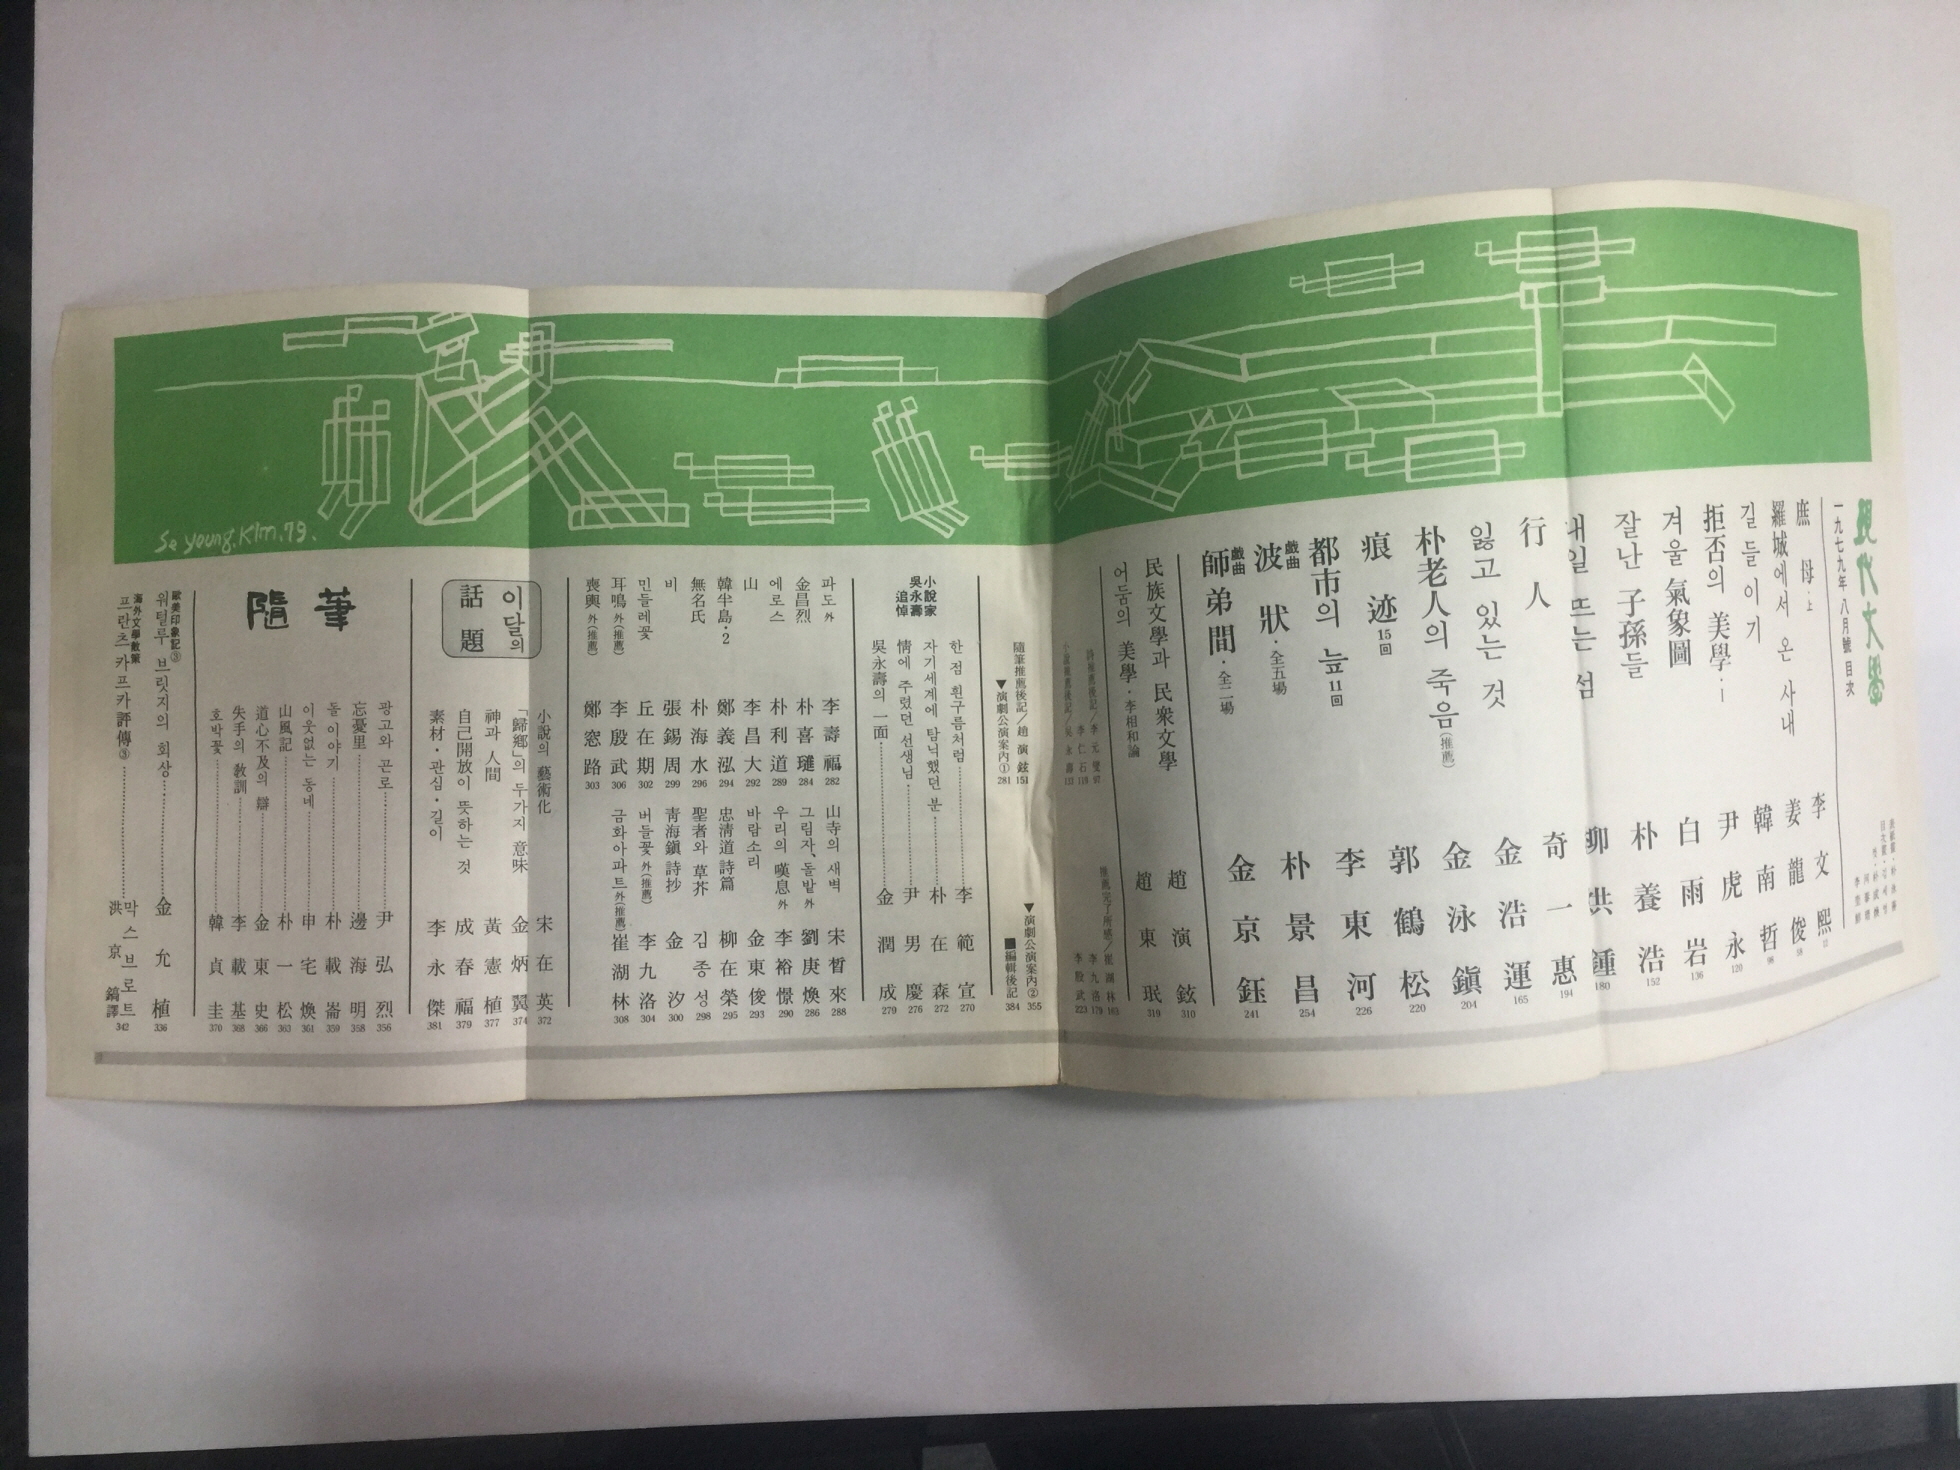 現代文學
一九七九年 八月號 目次
庶母·上 李文熙 12
羅城에서 온 사내 姜龍俊 58
길들이기 韓南哲 98
拒否의 美學·Ⅰ 尹虎永 120
겨울 氣象圖 白雨岩 136
잘난 子孫들 朴養浩 152
내일 뜨는 섬 柳洪鍾 180
行人 奇一惠 194
잃고 있는 것 金浩運 165
朴老人의 죽음(推薦) 金泳鎭 204
痕迹 15回 郭鶴松 220
都市의 늪 11回 李東河 226
戱曲 波狀·全五場 朴景昌 254
戱曲 師弟間·全二場 金京鈺 241
民族文學과 民衆文學 趙演鉉 310
어둠의 美學·李相和論 趙東珉 319
詩推薦後記/李元燮 97
李仁石 119
小說推薦後記/吳永壽 133
推薦完了所感/崔湖林 163
李九洛 179
李殷武 223
隨筆推薦後記/趙演鉉 151
▼演劇公演案內① 281
▼演劇公演案內② 355
■編輯後記 384
小說家 吳永壽 追悼
한 점 흰구름처럼 李範宣 270
자기세계에 탐닉했던 분 朴在森 272
情에 주렸던 선생님 尹男慶 276
吳永壽의 一面 金潤成 279
파도 外 李壽福 282
金昌烈 朴喜璡 284
에로스 朴利道 289
山 李昌大 292
韓半島·2 鄭義泓 294
無名氏 朴海水 296
비 張錫周 299
민들레꽃 丘在期 302
耳鳴 外(推薦) 李殷武 306
喪輿 外(推薦) 鄭窓路 303
山寺의 새벽 宋晳來 288
그림자, 돌밭 外 劉庚煥 286
우리의 嘆息 外 李裕憬 290
바람소리 金東俊 293
忠淸道 詩篇 柳在榮 295
聖者와 草芥 김종성 298
靑海鎭 詩抄 金汐 300
버들꽃 外(推薦) 李九洛 304
금화아파트 外(推薦) 崔湖林 308
이달의 話題
小說의 藝術化 宋在英 372
「歸鄕」의 두가지 意味 金炳翼 374
神과 人間 黃憲植 377
自己開放이 뜻하는 것 成春福 379
素材·관심·길이 李永傑 381
隨筆
광고와 곤로 尹弘烈 356
忘憂里 邊海明 358
돌 이야기 朴載崙 359
이웃없는 동네 申宅煥 361
山風記 朴一松 363
道心不及의 辯 金東史 366
失手의 敎訓 李載基 368
호박꽃 韓貞圭 370
歐美印象記③
워털루 브릿지의 회상 金允植 336
海外文學散策
프란츠 카프카評傳③ 막스 브로트
洪京鎬譯 342
Se young. Kim. 79.